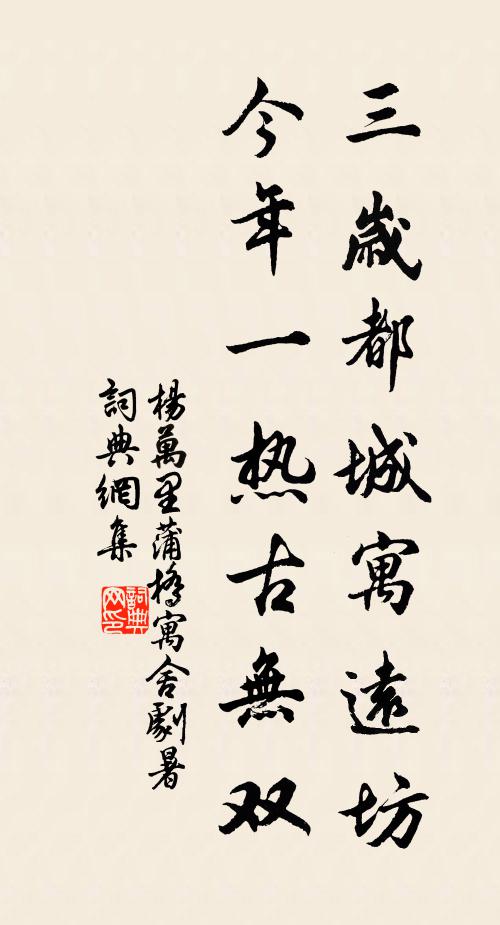 三歲都城寓遠坊
今年一热古無双
楊萬里蒲橋寓舍劇暑
詞典網集
詞典网印